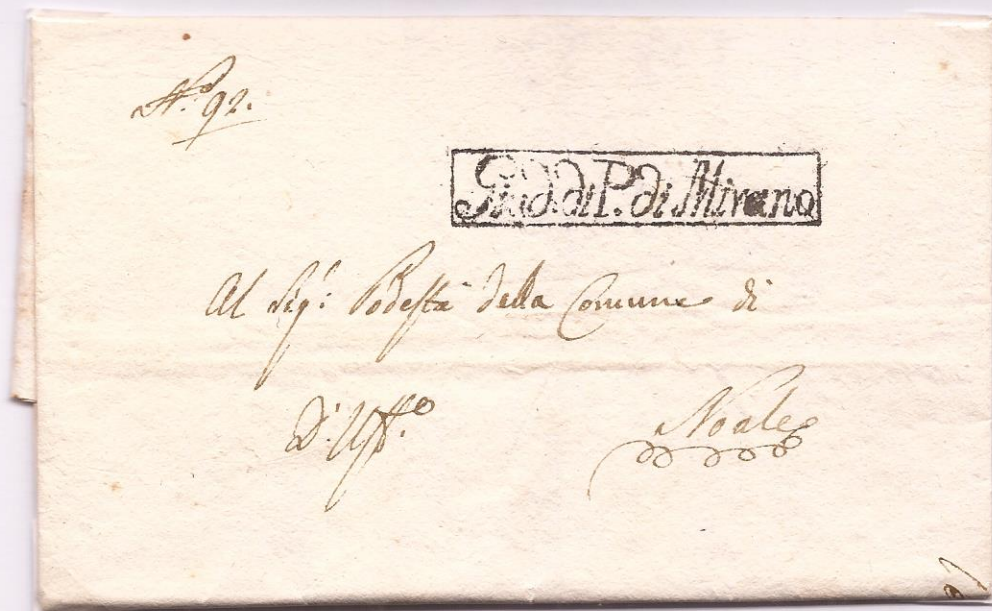 N.º 92.
Giud. di P. di Mirano
Al Sig.: Podestà della Comune di
D'Uff.º
Noale